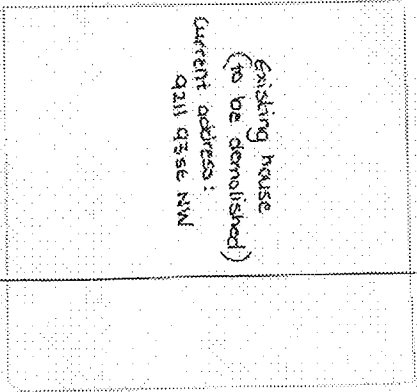 Existing house
(to be demolished)
Current address:
9211 93St NW